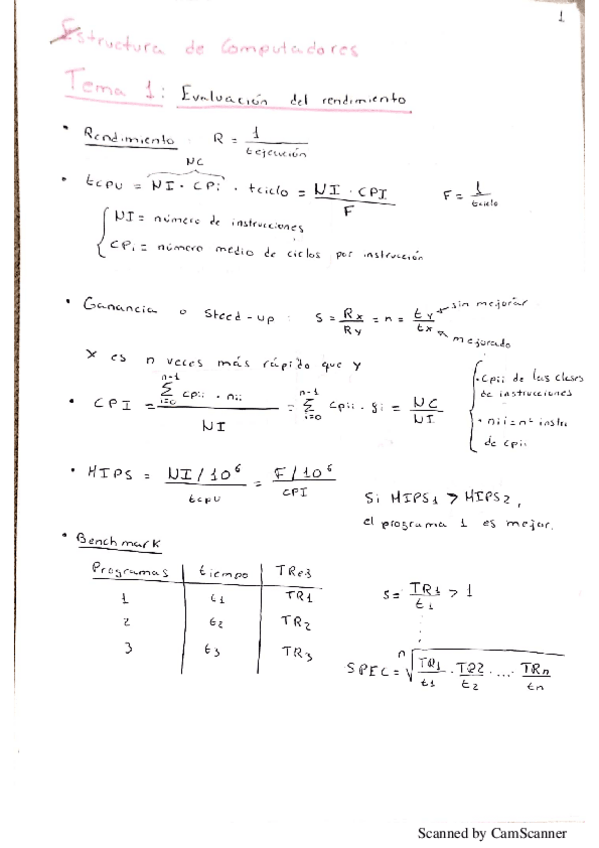 1
Estructura de Computadores
Tema 1: Evaluación del rendimiento
• Rendimiento: R = 1 / tejecución
NC
• tCPU = NI · CPi · tciclo = NI · CPI / F    F = 1 / tciclo
NI = número de instrucciones
CPi = número medio de ciclos por instrucción
• Ganancia o Steed-up: S = Rx / Ry = n = ty / tx
sin mejorar
mejorado
X es n veces más rápido que y
• CPI = n-1 Σ i=0 cpii · nii / NI = n-1 Σ i=0 cpii · gi = NC / NI
· cpii de las clases
de instrucciones
· nii = nº instr.
de cpii
• MIPS = NI / 10⁶ / tcpu = F / 10⁶ / CPI
Si MIPS1 > MIPS2,
el programa 1 es mejor.
• Benchmark
Programas | tiempo | TRe3
1 | t1 | TR1
2 | t2 | TR2
3 | t3 | TR3
S = TR1 / t1 > 1
SPEC = n√ TR1 / t1 · TR2 / t2 · ... · TRn / tn
Scanned by CamScanner